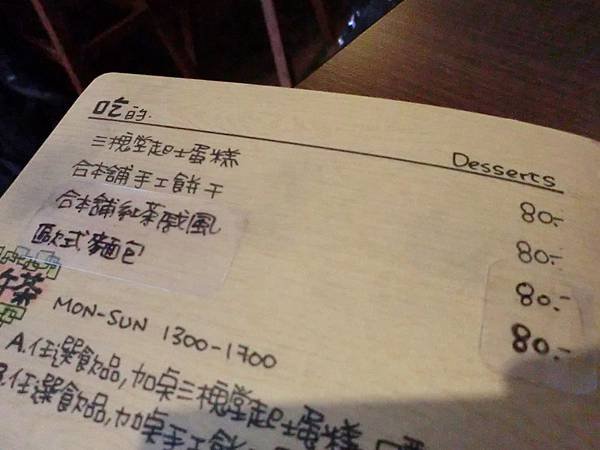 吃的.
Desserts
三槐堂起士蛋糕 80.-
合本舖手工餅干 80.-
合本舖紅茶戚風 80.-
歐式麵包 80.-
午茶
MON-SUN 1300-1700
A.任選飲品,加桌三槐堂起士蛋糕
B.任選飲品,加桌手工餅